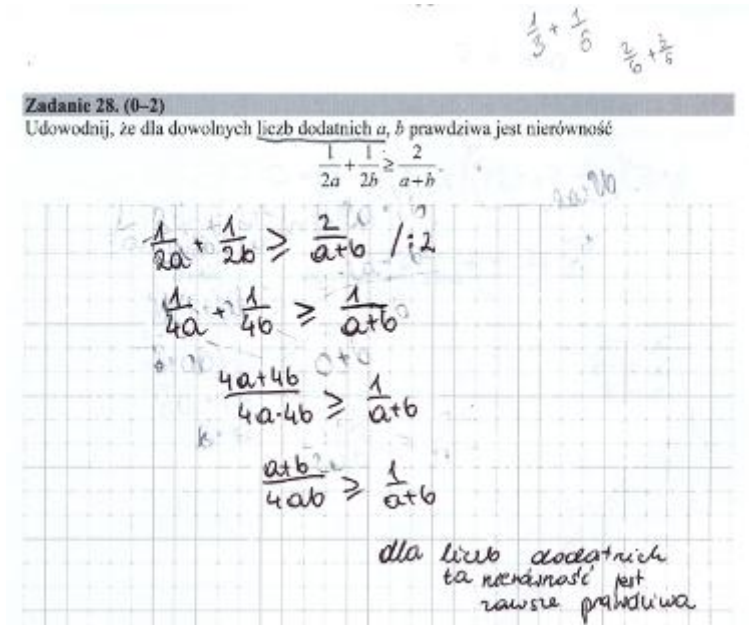 1/3 + 1/6
2/6 +
Zadanie 28. (0–2)
Udowodnij, że dla dowolnych liczb dodatnich a, b prawdziwa jest nierówność
1/2a + 1/2b ≥ 2/a+b.
2a·2b
1/2a + 1/2b ≥ 2/a+b /:2
1/4a + 1/4b ≥ 1/a+b
4a+4b/4a·4b ≥ 1/a+b
a+b/4ab ≥ 1/a+b
dla liczb dodatnich
ta nierówność jest
zawsze prawdziwa